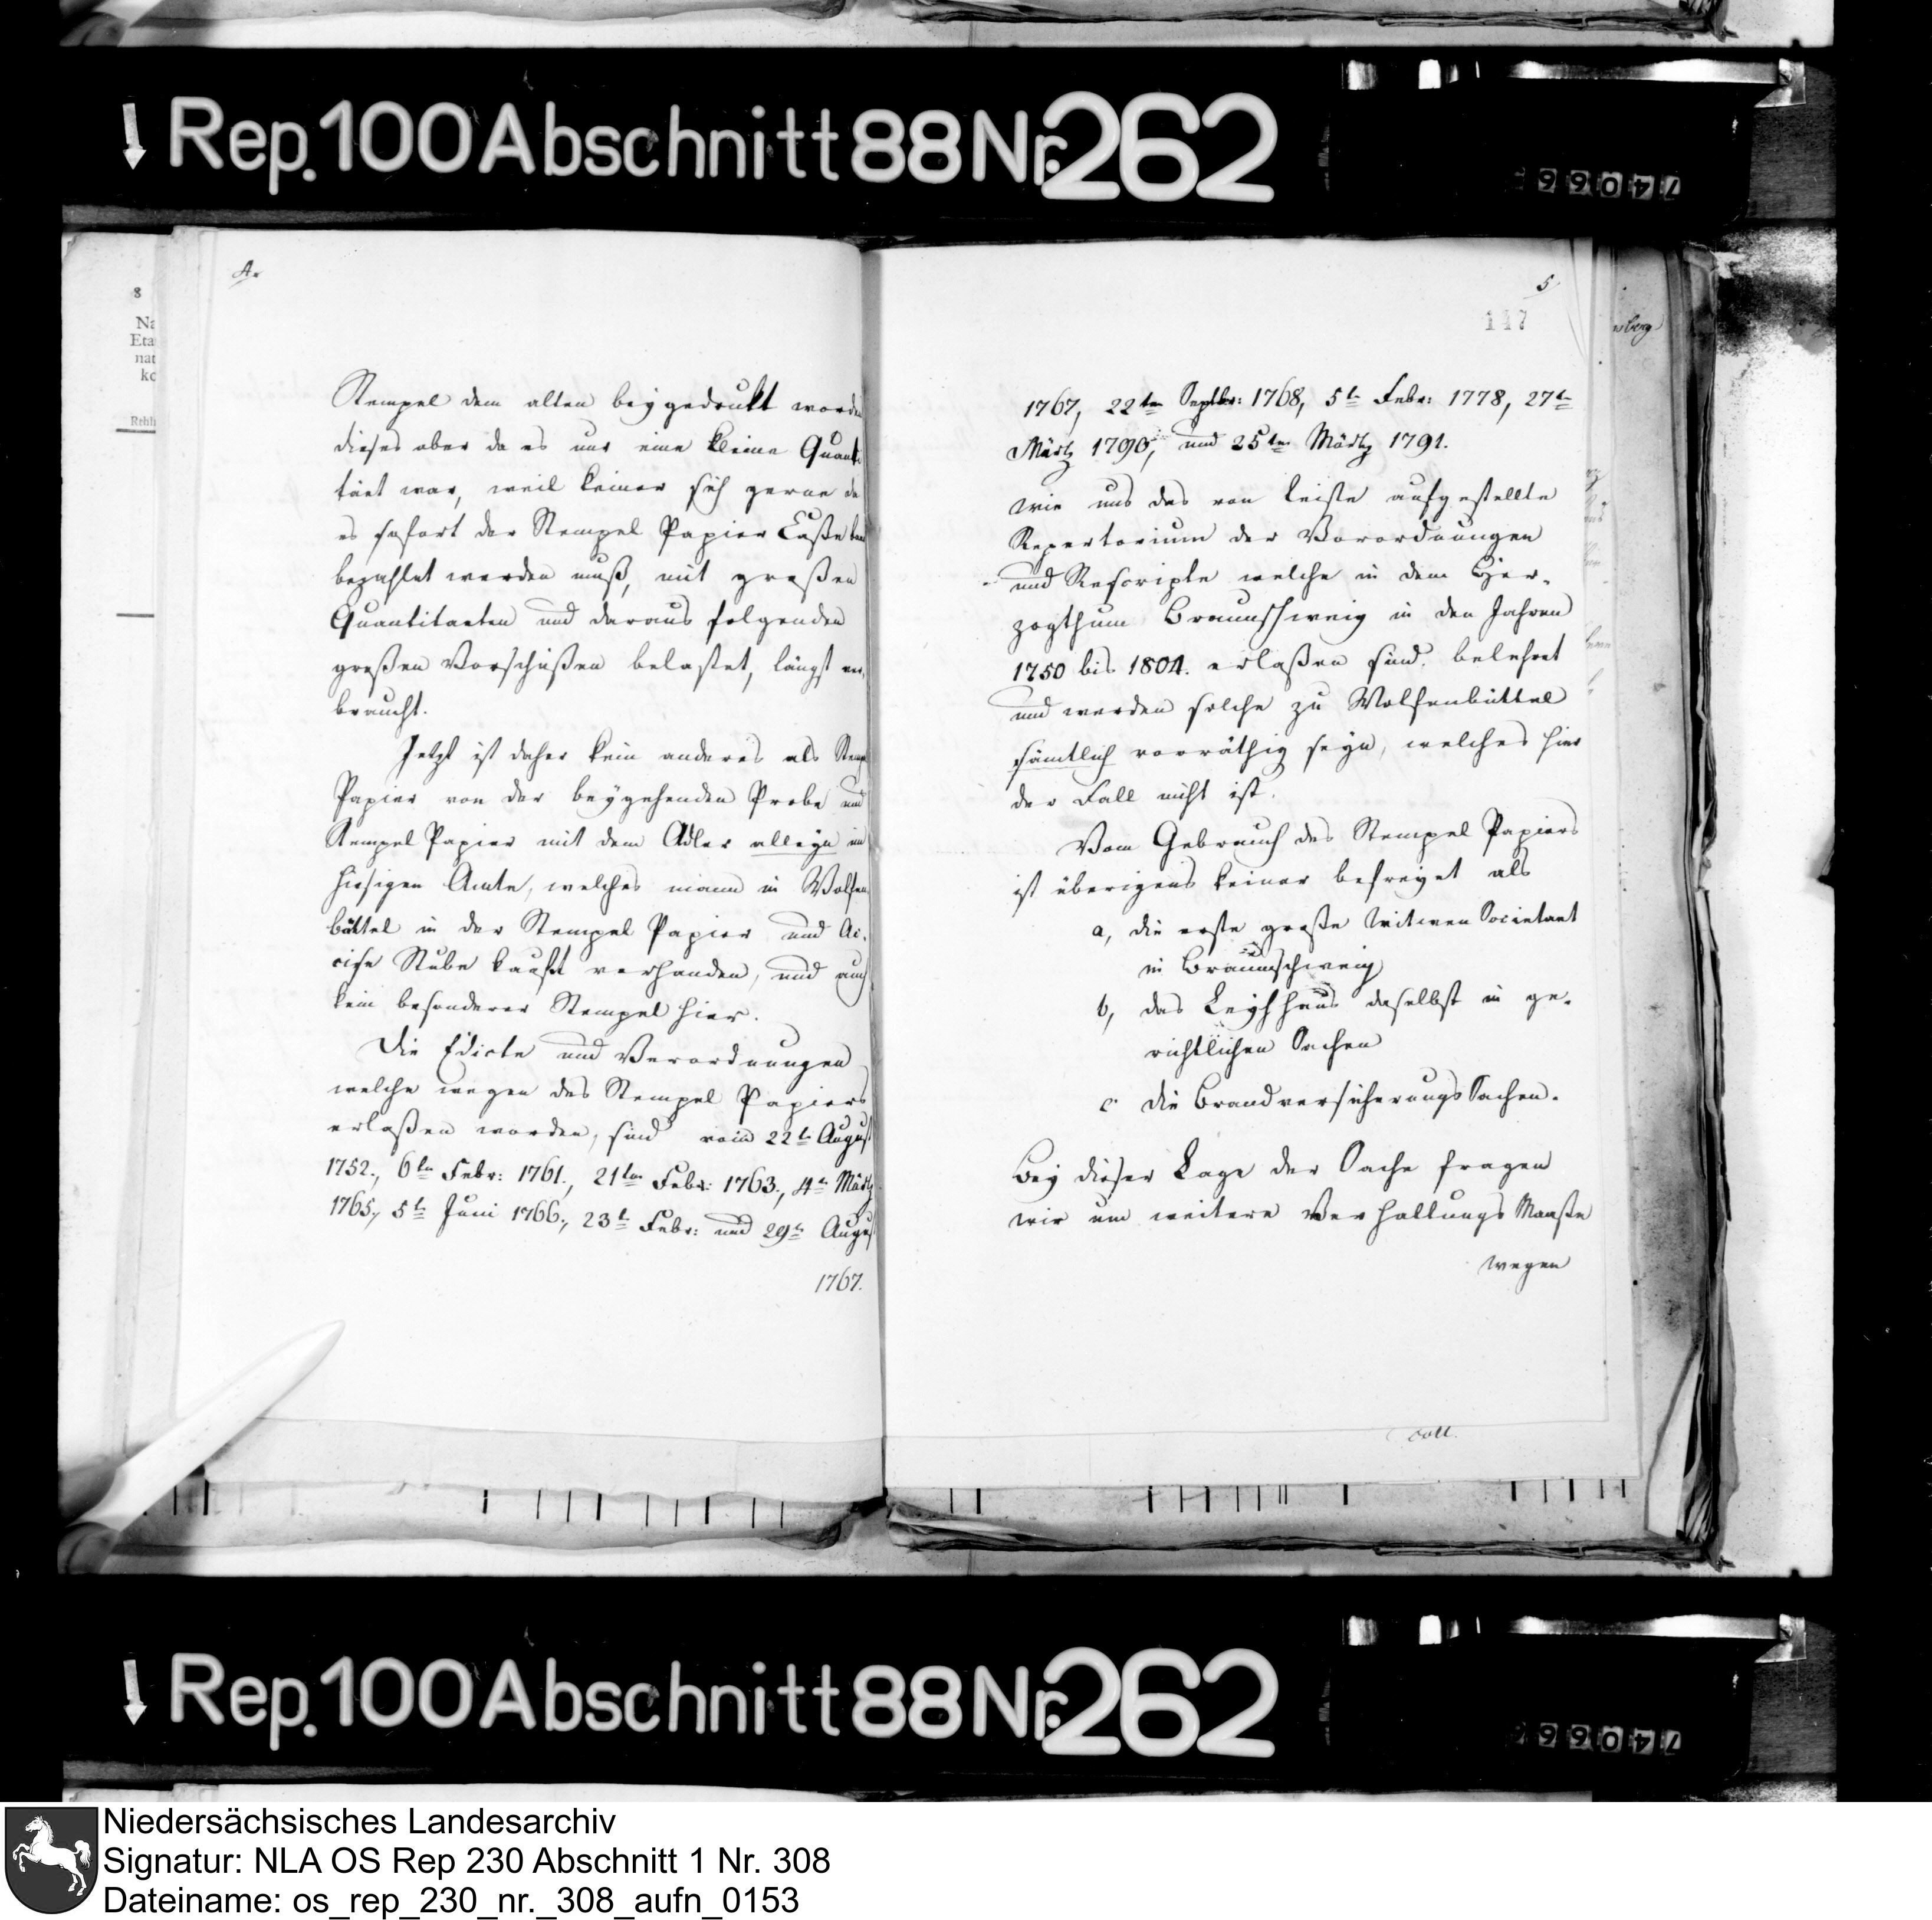 Rep. 100 Abschnitt 88 Nr. 262
74066
4.
Stempel dem alten beygedrukt worden
dieses aber da es nur eine kleine Quanti
täet war, weil keiner sich gerne da
es sofort der Stempel Papier Casse
bezahlet werden muß, mit großen
Quantitaeten und daraus folgenden
großen Vorschüßen belastet, längst ver,
braucht.
Jetzt ist daher kein anderes als Stempel
Papier von der beygehenden Probe und
Stempel Papier mit dem Adler alleyn im
hiesigen Amte, welches mann in Wolfen
büttel in der Stempel Papier und Ac,
cise Stube kauft vorhanden, und auch
kein besonderer Stempel hier.
Die Edicte und Verordnungen
welche wegen des Stempel Papiers
erlaßen worden, sind vom 22t August
1752., 6ten Febr: 1761., 21ten Febr: 1763., 4t Märtz
1765., 5t Juni 1766., 23t Febr: und 29t August
1767.
5
147
1767, 22ten Septbr: 1768, 5t Febr: 1778, 27t
Märtz 1790, und 25ten Märtz 1791.
wie uns das von Leiste aufgestellte
Repertorium der Verordnungen
und Rescripte welche in dem Her-
zogthum Braunschweig in den Jahren
1750 bis 1804. erlaßen sind, belehret
und werden solche zu Wolfenbüttel
sämtlich vorräthig seyn, welches hier
der Fall nicht ist.
Vom Gebrauch des Stempel Papiers
ist überigens keiner befreyet als
a, die erste große Witwen Societaet
in Braunschweig
b, das Leyhhaus daselbst in ge-
richtlichen Sachen
c die Brandversicherungs Sachen.
Bey dieser Lage der Sache fragen
wir um weitere Verhaltungs Maaße
wegen
coll.
8
Na
Eta
nat
ko
Rthlr
Rep. 100 Abschnitt 88 Nr. 262
74066
Niedersächsisches Landesarchiv
Signatur: NLA OS Rep 230 Abschnitt 1 Nr. 308
Dateiname: os_rep_230_nr._308_aufn_0153